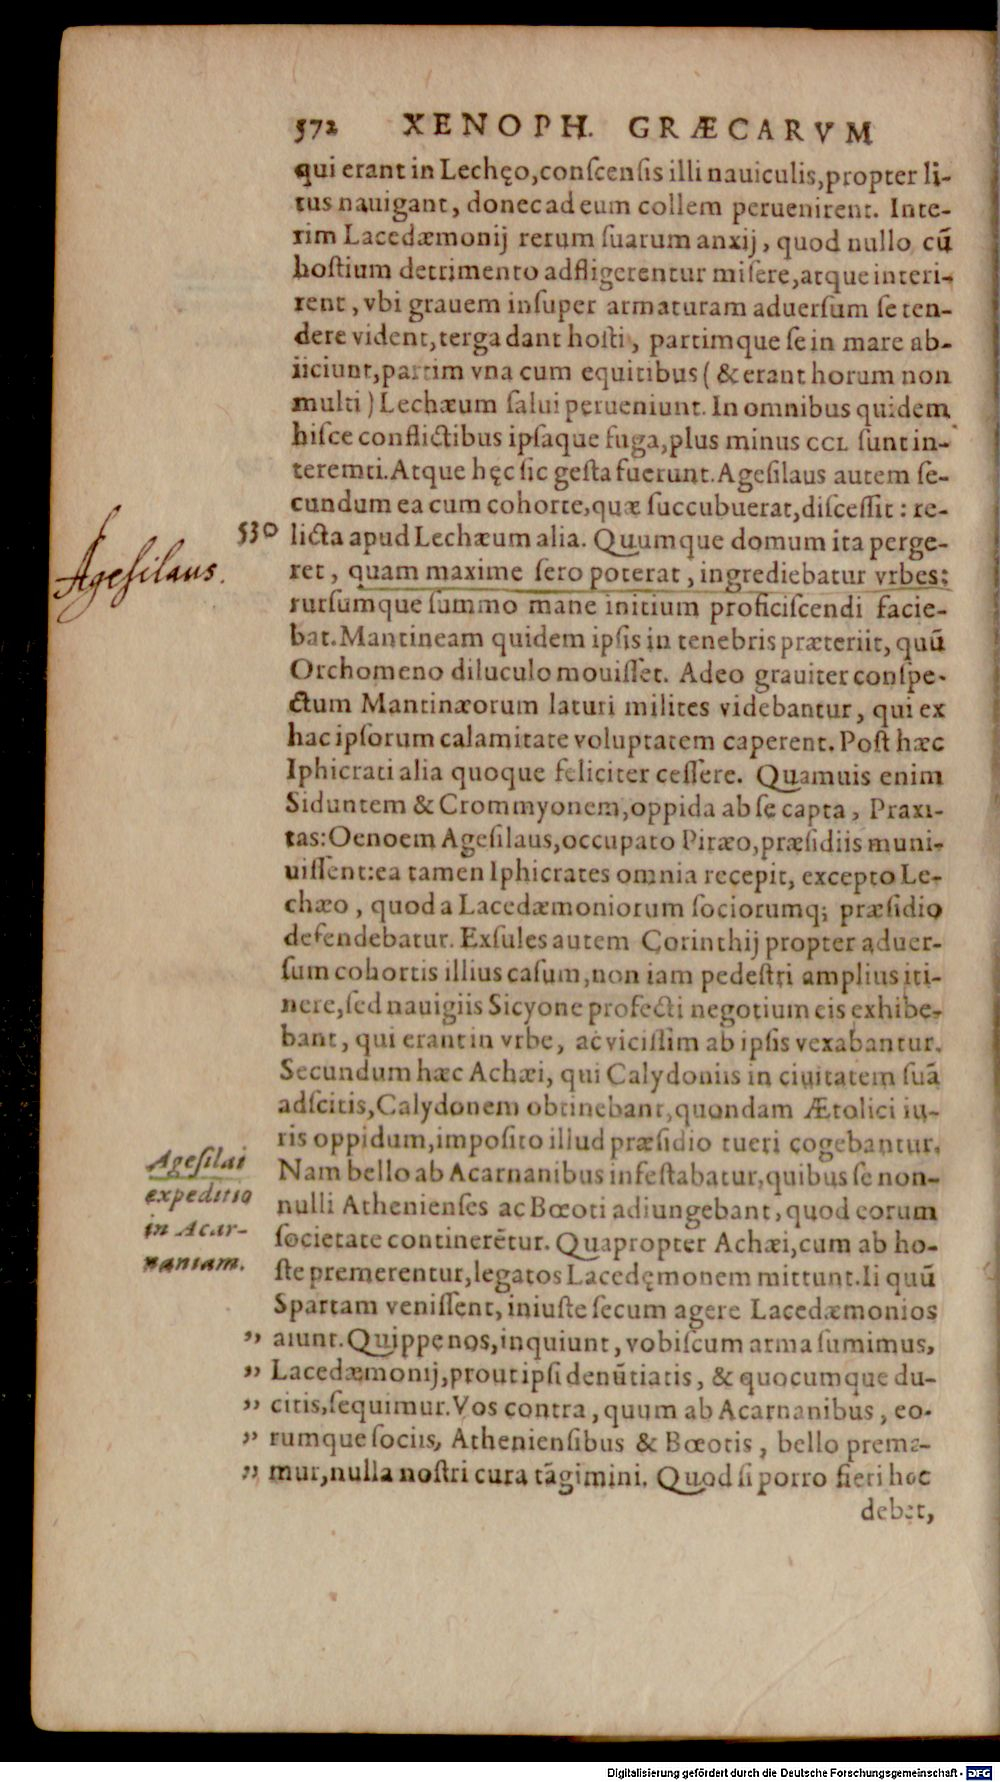 572 XENOPH. GRÆCARVM
qui erant in Lechęo, conſcenſis illi nauiculis, propter li-
tus nauigant, donec ad eum collem peruenirent. Inte-
rim Lacedæmonij rerum ſuarum anxij, quod nullo cū
hoſtium detrimento adfligerentur miſere, atque interi-
rent, vbi grauem inſuper armaturam aduerſum ſe ten-
dere vident, terga dant hoſti, partimque ſe in mare ab-
iiciunt, partim vna cum equitibus (& erant horum non
multi) Lechæum ſalui perueniunt. In omnibus quidem
hiſce conflictibus ipſaque fuga, plus minus CCL ſunt in-
teremti. Atque hęc ſic geſta fuerunt. Ageſilaus autem ſe-
cundum ea cum cohorte, quæ ſuccubuerat, diſceſſit: re-
530 licta apud Lechæum alia. Quumque domum ita perge-
Ageſilaus.
ret, quam maxime ſero poterat, ingrediebatur vrbes:
rurſumque ſummo mane initium proficiſcendi facie-
bat. Mantineam quidem ipſis in tenebris præteriit, quū
Orchomeno diluculo mouiſſet. Adeo grauiter conſpe-
ctum Mantinæorum laturi milites videbantur, qui ex
hac ipſorum calamitate voluptatem caperent. Poſt hæc
Iphicrati alia quoque feliciter ceſſere. Quamuis enim
Siduntem & Crommyonem, oppida ab ſe capta, Praxi-
tas: Oenoem Ageſilaus, occupato Piræo, præſidiis muni-
uiſſent: ea tamen Iphicrates omnia recepit, excepto Le-
chæo, quod a Lacedæmoniorum ſociorumq; præſidio
defendebatur. Exſules autem Corinthij propter aduer-
ſum cohortis illius caſum, non iam pedeſtri amplius iti-
nere, ſed nauigiis Sicyone profecti negotium eis exhibe-
bant, qui erant in vrbe, ac viciſſim ab ipſis vexabantur.
Secundum hæc Achæi, qui Calydoniis in ciuitatem ſuā
adſcitis, Calydonem obtinebant, quondam Ætolici iu-
ris oppidum, impoſito illud præſidio tueri cogebantur.
Ageſilai
expeditio
in Acar-
naniam.
Nam bello ab Acarnanibus infeſtabatur, quibus ſe non-
nulli Athenienſes ac Bœoti adiungebant, quod eorum
ſocietate continerētur. Quapropter Achæi, cum ab ho-
ſte premerentur, legatos Lacedęmonem mittunt. Ii quū
Spartam veniſſent, iniuſte ſecum agere Lacedæmonios
„ aiunt. Quippe nos, inquiunt, vobiſcum arma ſumimus,
„ Lacedæmonij, prout ipſi denūtiatis, & quocumque du-
„ citis, ſequimur. Vos contra, quum ab Acarnanibus, eo-
„ rumque ſociis, Athenienſibus & Bœotis, bello prema-
„ mur, nulla noſtri cura tāgimini. Quod ſi porro fieri hoc
debet,
Digitalisierung gefördert durch die Deutsche Forschungsgemeinschaft - DFG